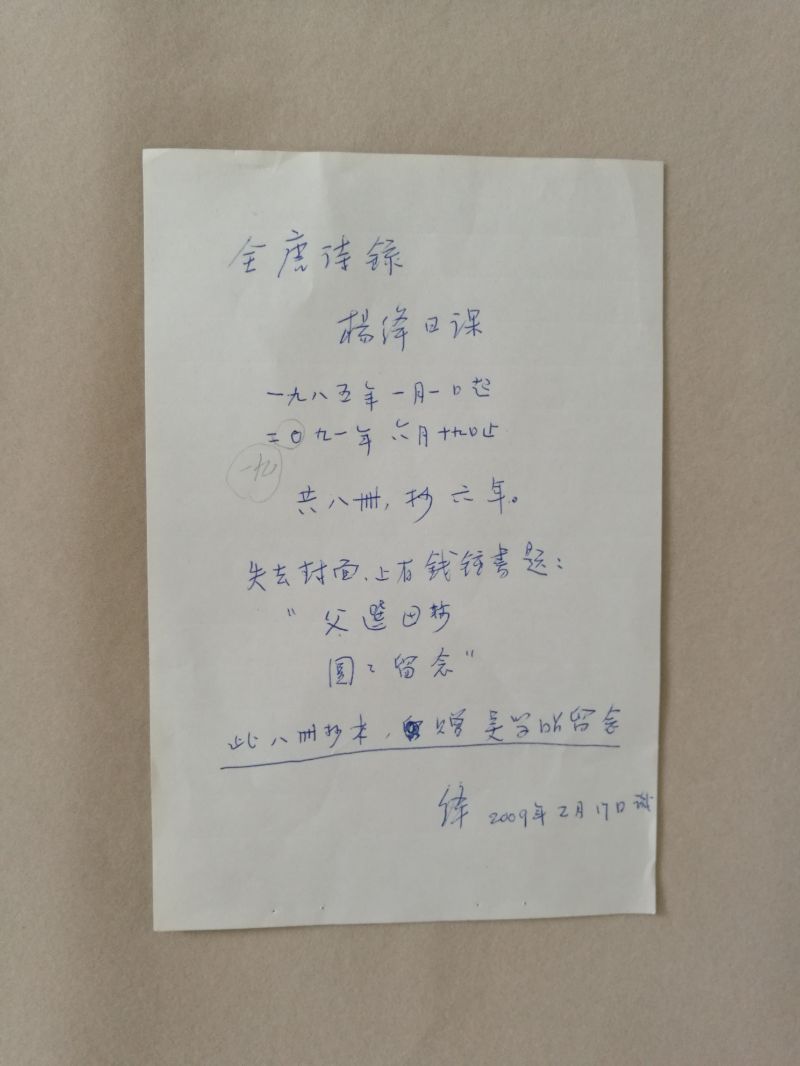 全唐诗录
楊绛日课
一九八五年一月一日起
二〇九一年六月十九日止
一九
共八册，抄六年。
失去封面、上有钱锺書题：
"父選母抄
圆々留念"
此八册抄本，赠吴学昭留念
绛 2009年2月17日识